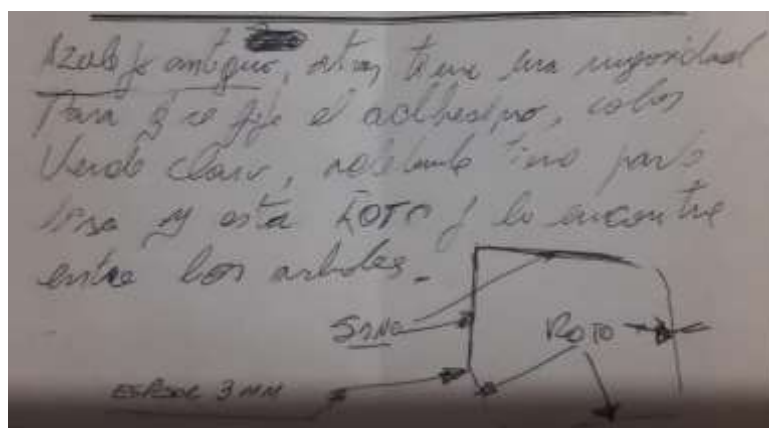 Azulejo antiguo, atras tiene una rugosidad
Para q se fije el adhesivo, color
Verde claro, adelante tiene parte
lisa y esta ROTO y lo encontre
entre los arboles.
SANO
ROTO
ESPESOR 3 MM